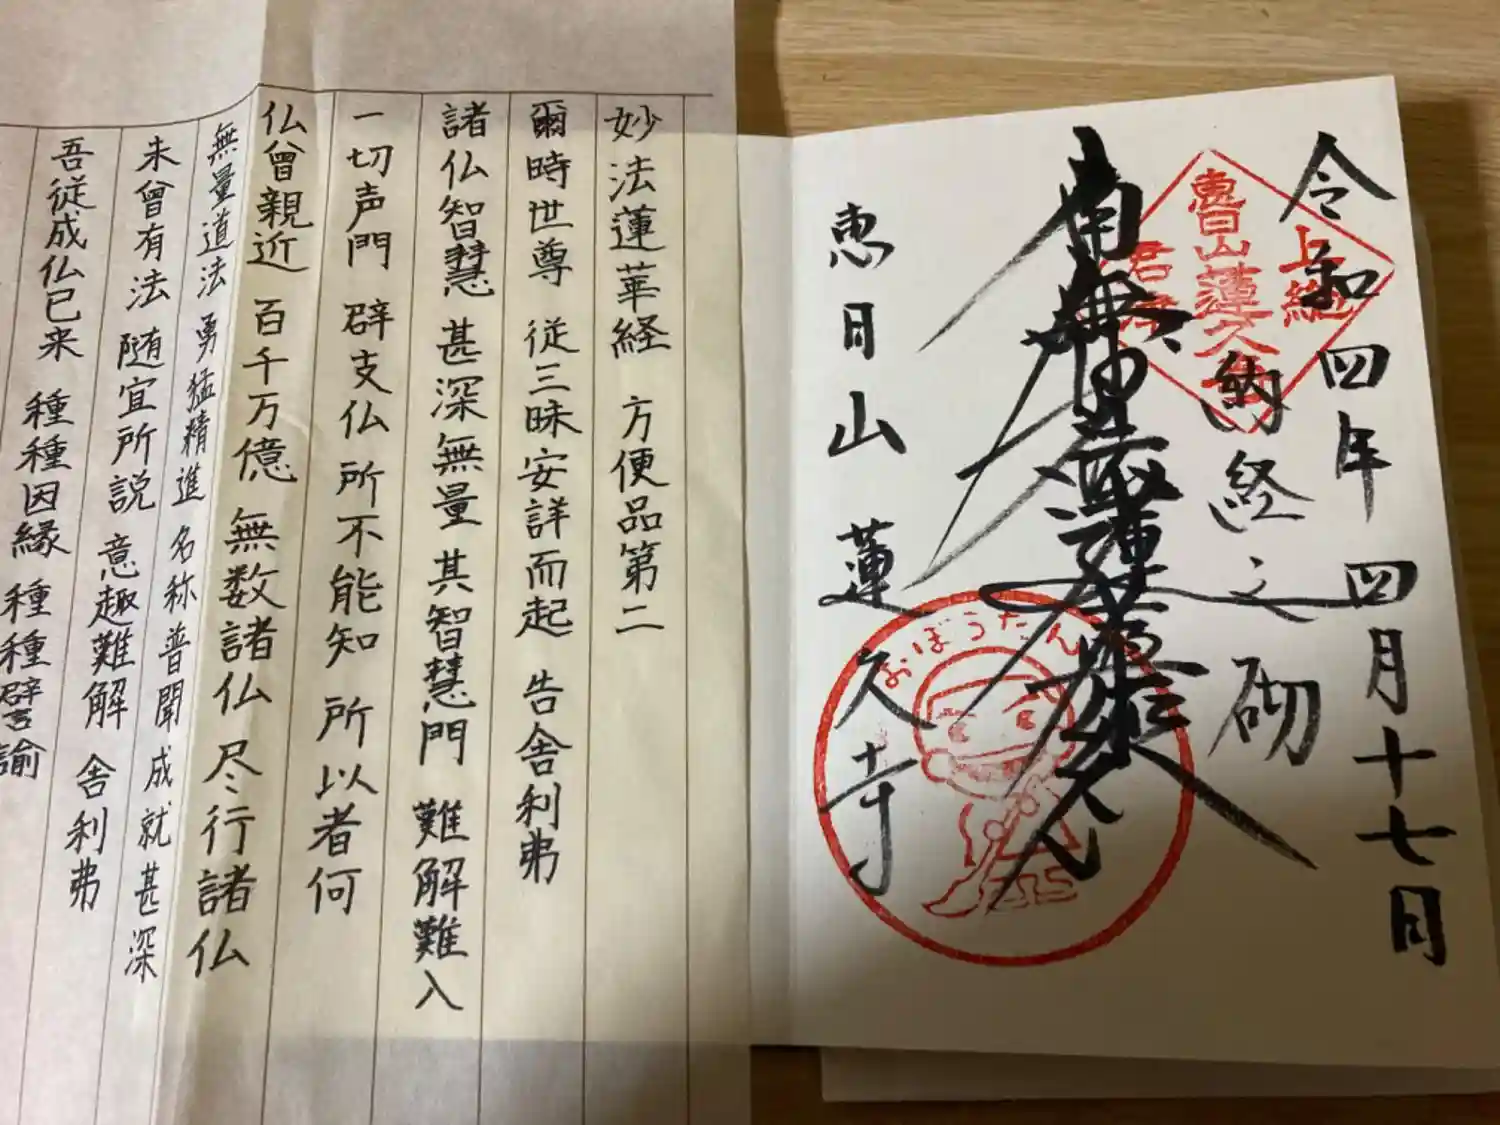 令和四年四月十七日
納経之砌
南無妙法蓮華経
恵日山蓮久寺
上総
恵日山蓮久寺
君津
おぼうたん
妙法蓮華経 方便品第二
爾時世尊 従三昧安詳而起 告舎利弗
諸仏智慧 甚深無量 其智慧門 難解難入
一切声聞 辟支仏 所不能知 所以者何
仏曾親近 百千万億 無数諸仏 尽行諸仏
無量道法 勇猛精進 名称普聞 成就甚深
未曾有法 随宜所説 意趣難解 舎利弗
吾従成仏已来 種種因縁 種種譬諭